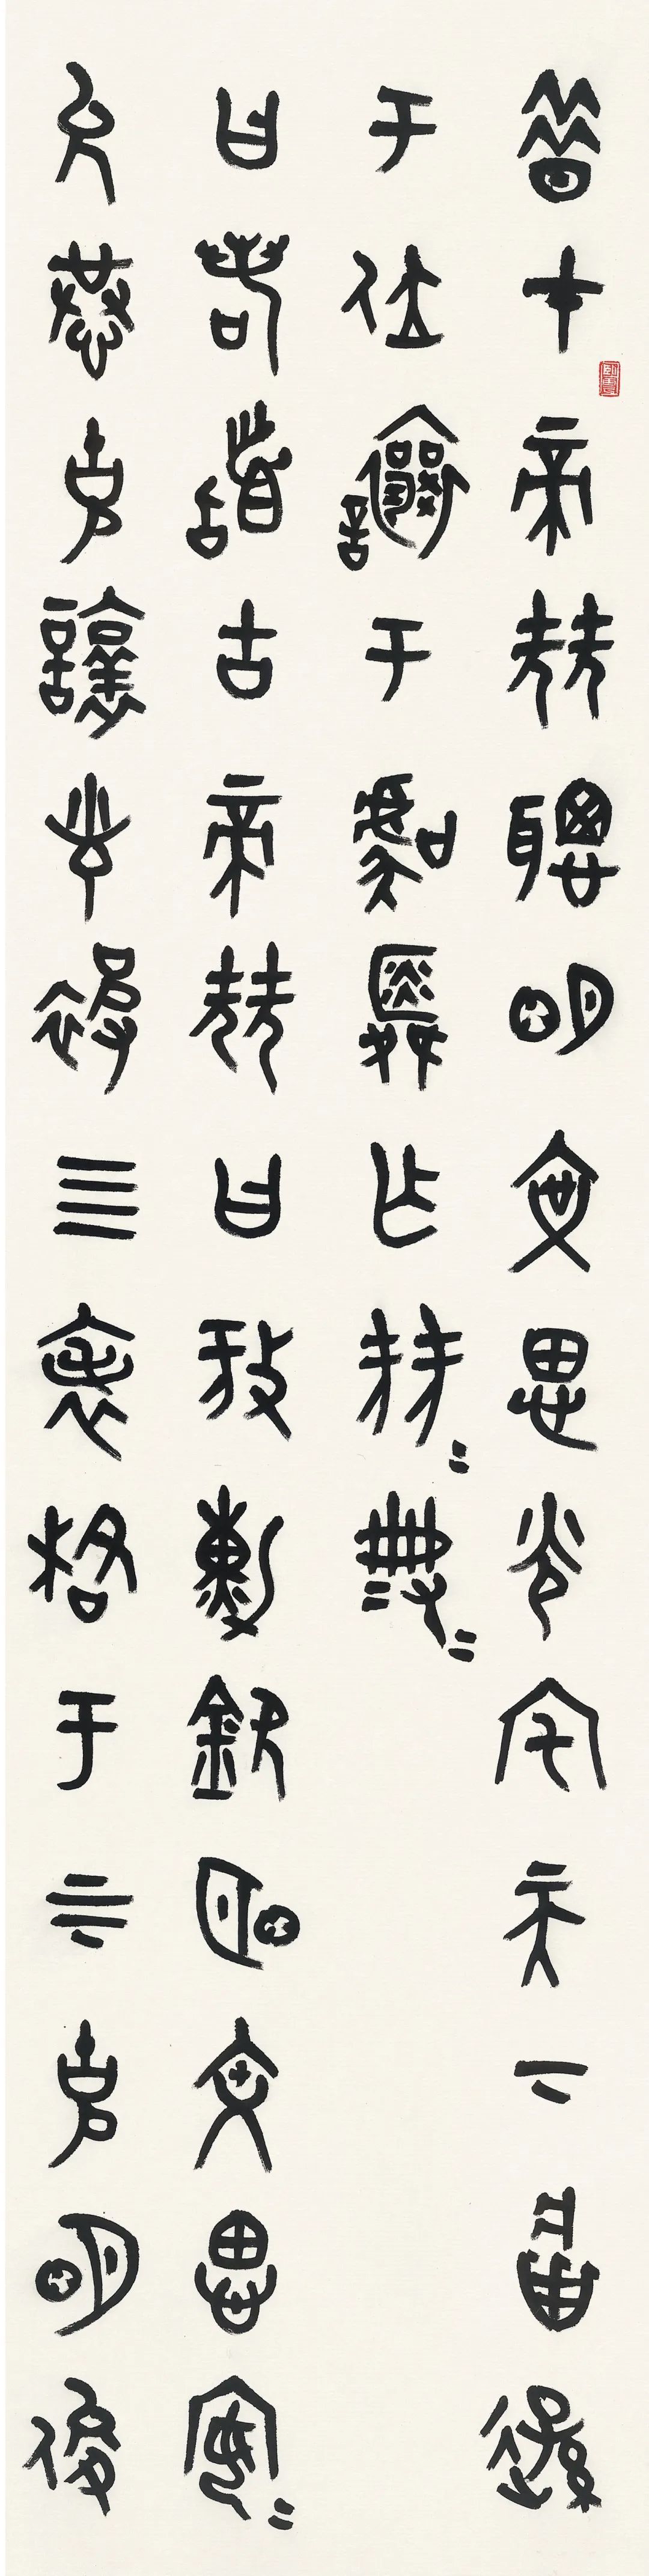 昔在帝堯聰明文思光宅天下將遜
于位讓于虞舜作堯〻典〻
曰若稽古帝堯曰放勳欽明文思安〻
允恭克讓光被四表格于上下克明俊